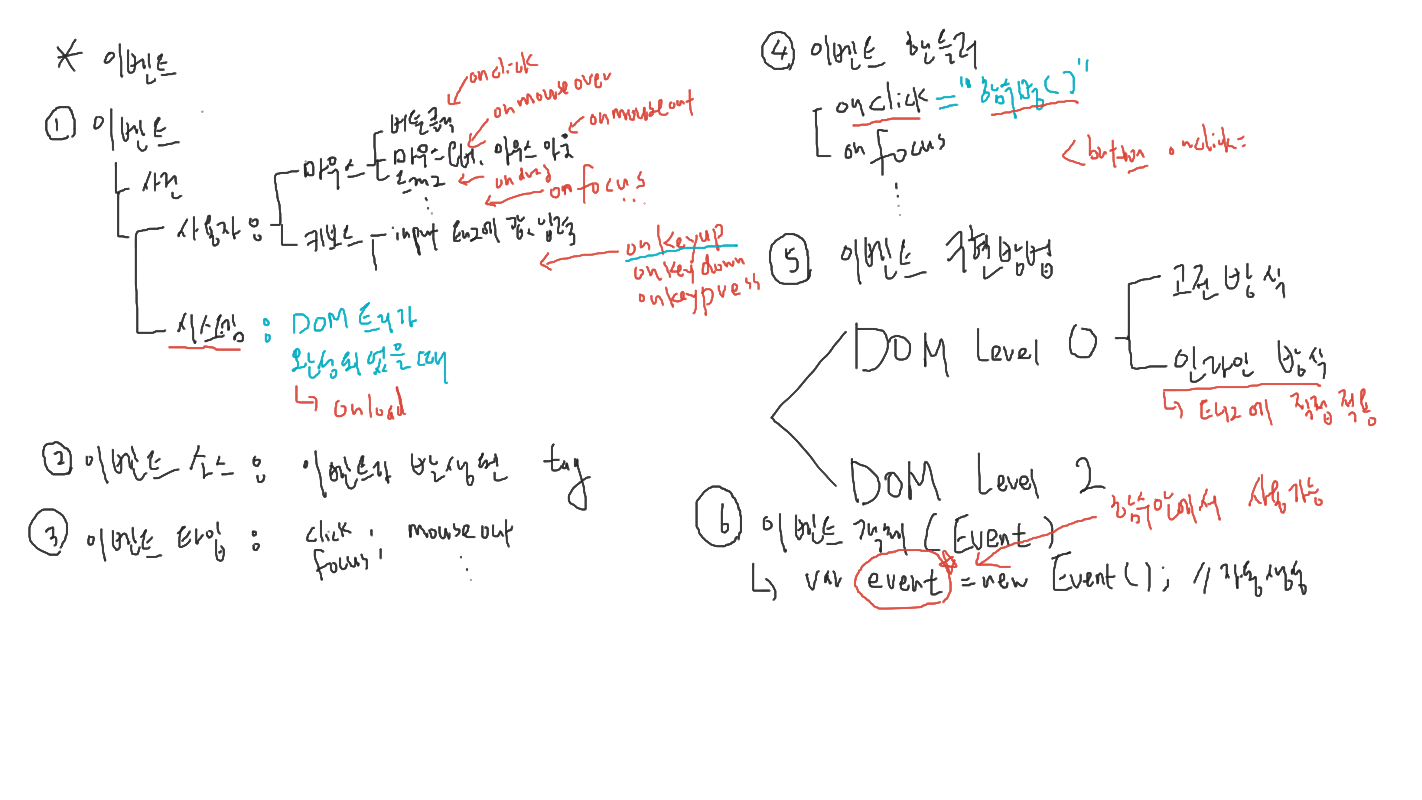 * 이벤트
① 이벤트
사건
사용자 :
마우스
버튼클릭
onclick
마우스오버, 마우스 아웃
onmouseover
onmouseout
드래그
ondrag
...
키보드
input 태그에 값 입력
onfocus
...
onkeyup
onkeydown
onkeypress
시스템 : DOM 트리가
완성되었을 때
↳ onload
② 이벤트 소스 : 이벤트가 발생된 tag
③ 이벤트 타입 : click, mouseout
focus, ...
④ 이벤트 핸들러
onclick="함수명()"
on focus
...
<button onclick=
⑤ 이벤트 구현방법
DOM Level 0
고전 방식
인라인 방식
↳ 태그에 직접 적용
DOM Level 2
⑥ 이벤트 객체 (Event)
함수안에서 사용가능
↳ var event = new Event(); // 자동생성